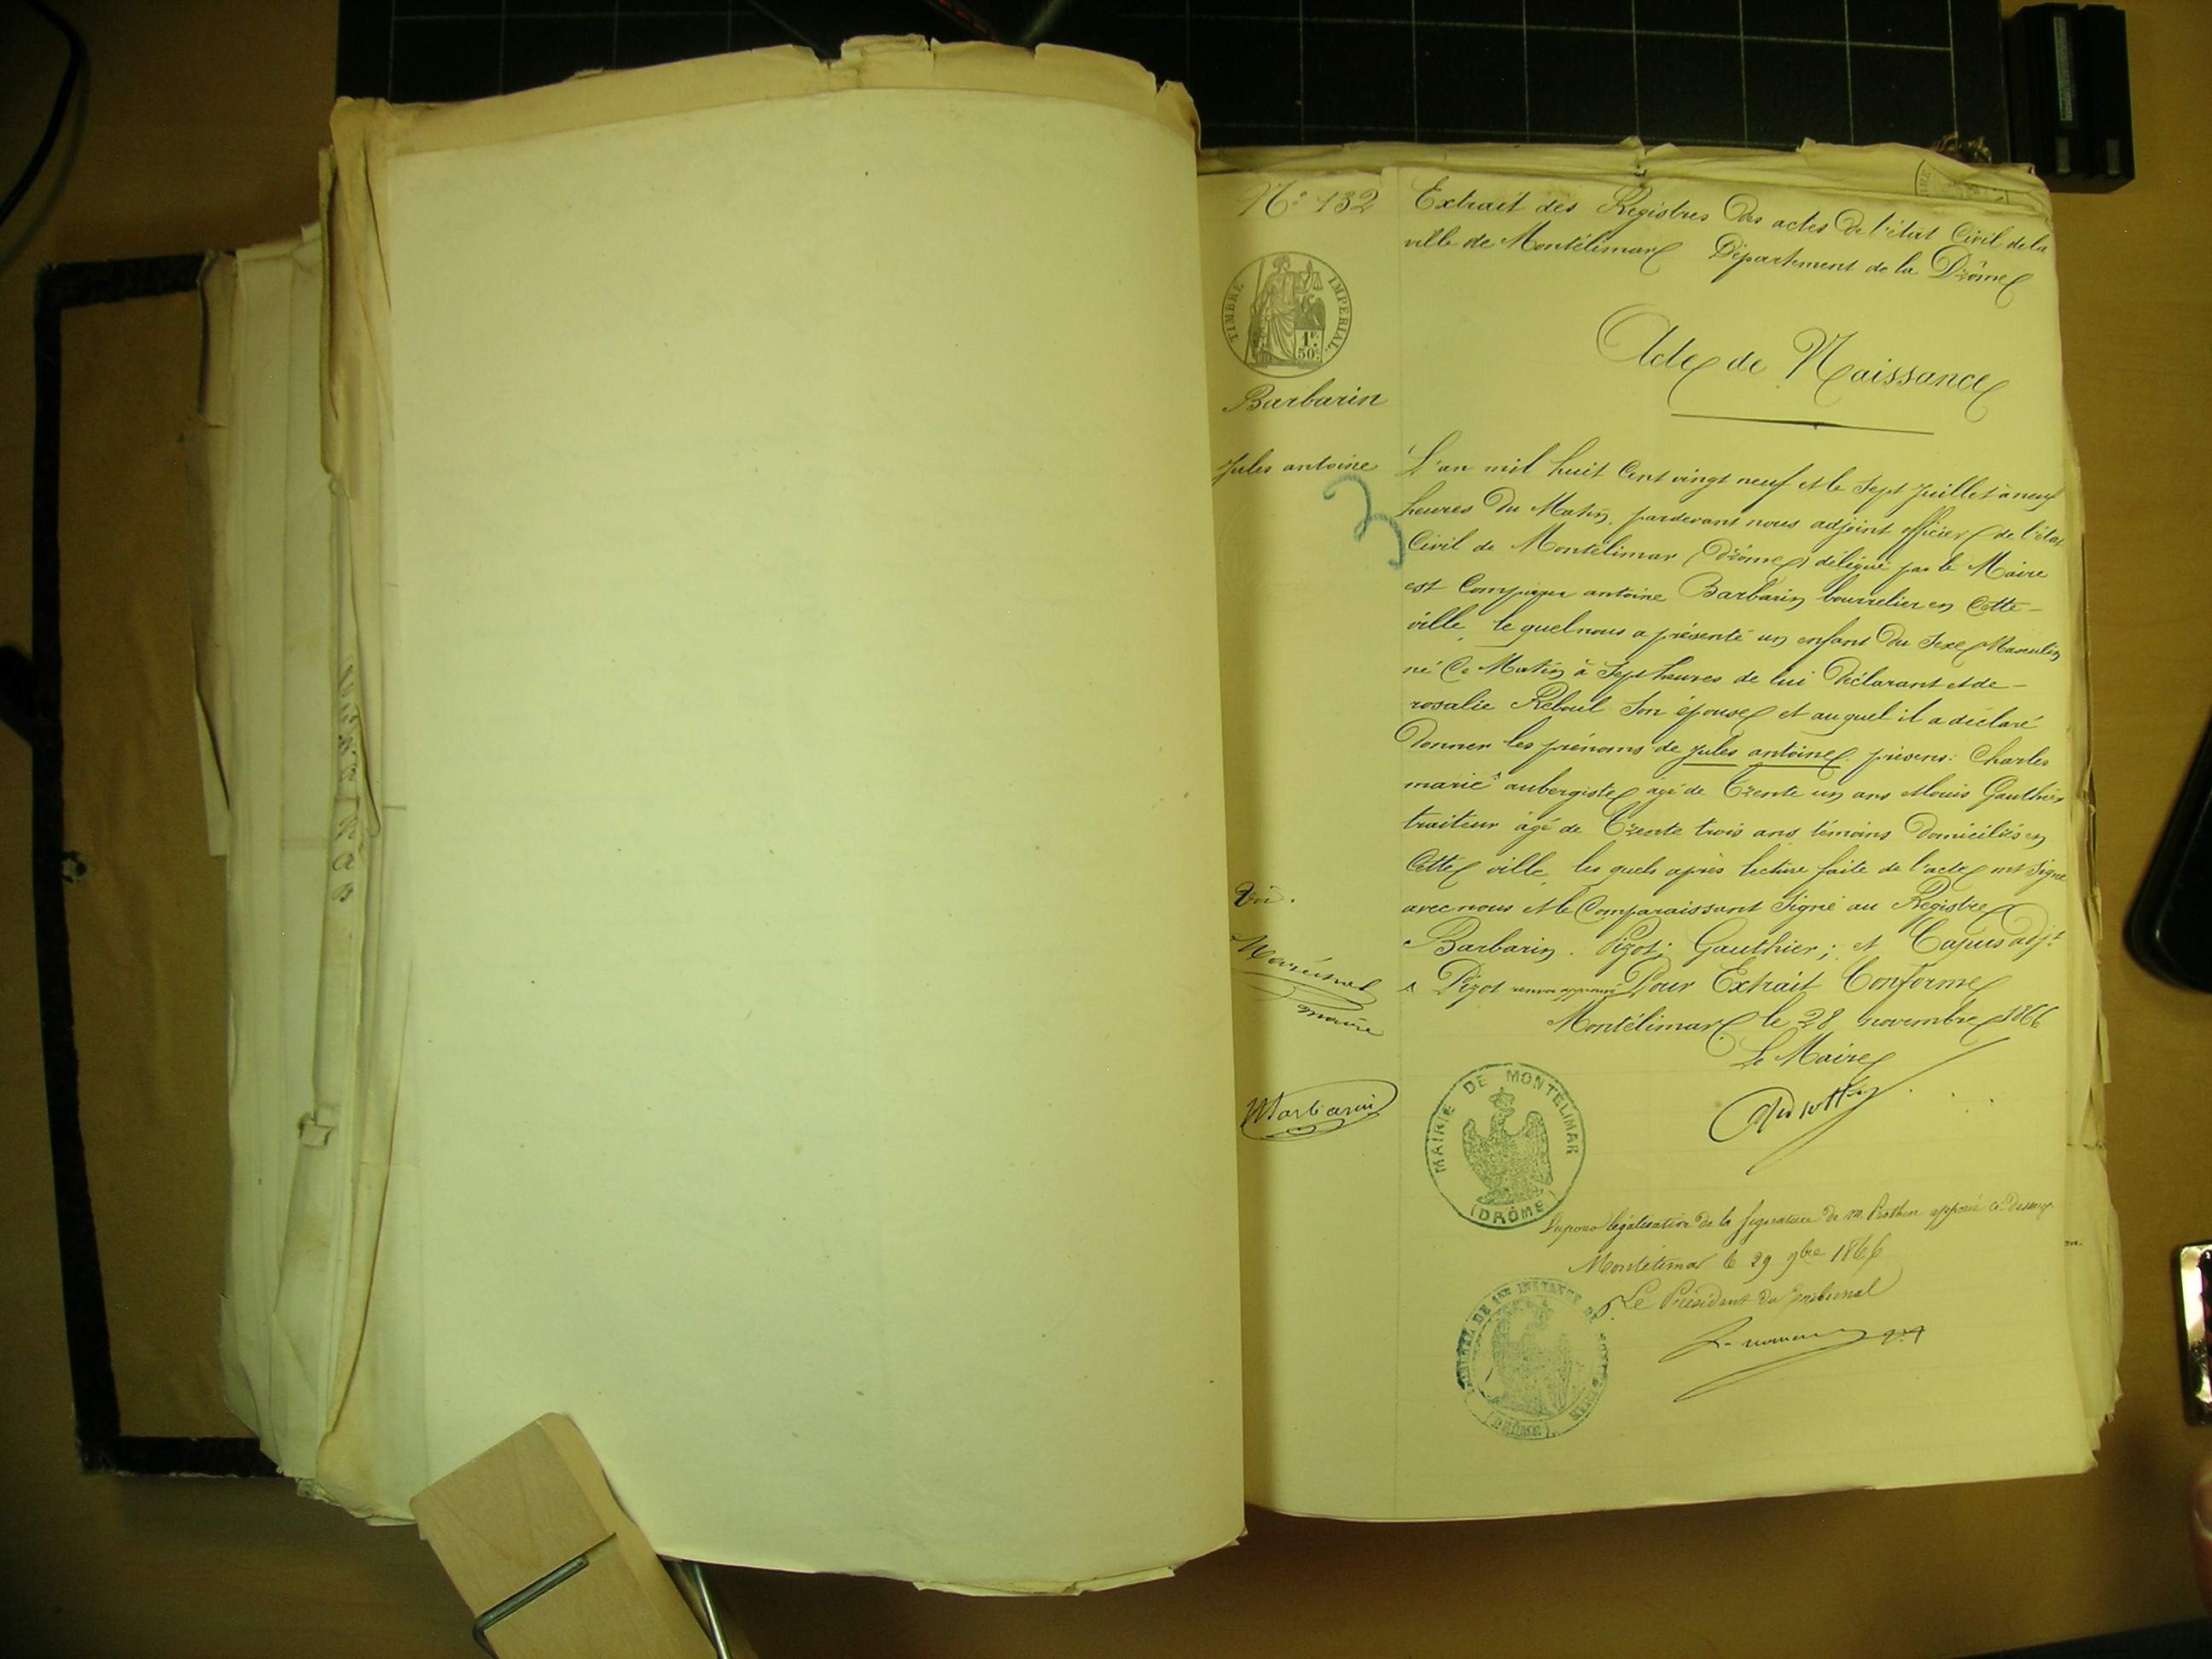 N° 132
TIMBRE IMPERIAL
1F.
50C.
Barbarin
Jules antoine
3
Vu.
maire
Barbarin
Extrait des Registres des actes de l'état Civil de la
ville de Montélimar Département de la Drôme
Acte de Naissance
L'an mil huit Cent vingt neuf et le Sept Juillet à neuf
heures du Matin, pardevant nous adjoint officier de l'état
Civil de Montélimar (Drôme) délégué par le Maire
est Comparu antoine Barbarin bourrelier en Cette
ville, le quel nous a présenté un enfant du Sexe Masculin
né Ce Matin à Sept heures de lui Déclarant et de
rosalie Reboul Son épouse et au quel il a déclaré
Donner les prénoms de Jules antoine. présens: Charles
marie aubergiste agé de Trente un ans et louis Gauthier
traiteur âgé de Trente trois ans, témoins Domiciliés en
Cette ville, les quels après lecture faite de l'acte ont Signé
avec nous et le Comparaissant Signé au Registre
Barbarin. Pizot; Gauthier; et Capus adjt
Pizot renvoi approuvé Pour Extrait Conforme
Montélimar le 28 novembre 1866
Le Maire
MAIRIE DE MONTÉLIMAR
(DRÔME)
Vu pour légalisation de la signature de M. apposée ci dessus
Montélimar le 29 9bre 1866
P. Le Président du Tribunal
TRIBUNAL DE 1RE INSTANCE DE MONTÉLIMAR
(DRÔME)